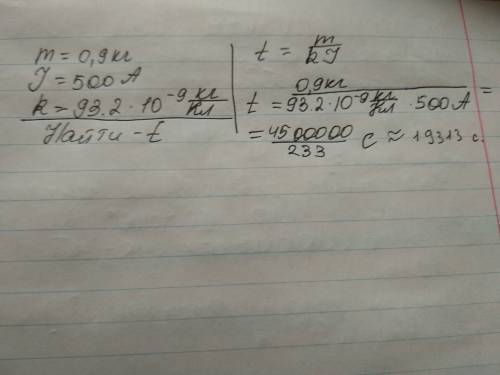 m = 0,9 кг
J = 500 А
k = 93.2 · 10⁻⁹ кг/Кл
Найти - t
t = m/kJ
t = 0,9 кг/93.2 · 10⁻⁹ кг/Кл · 500 А =
= 4500000/233 с ≈ 19313 с.